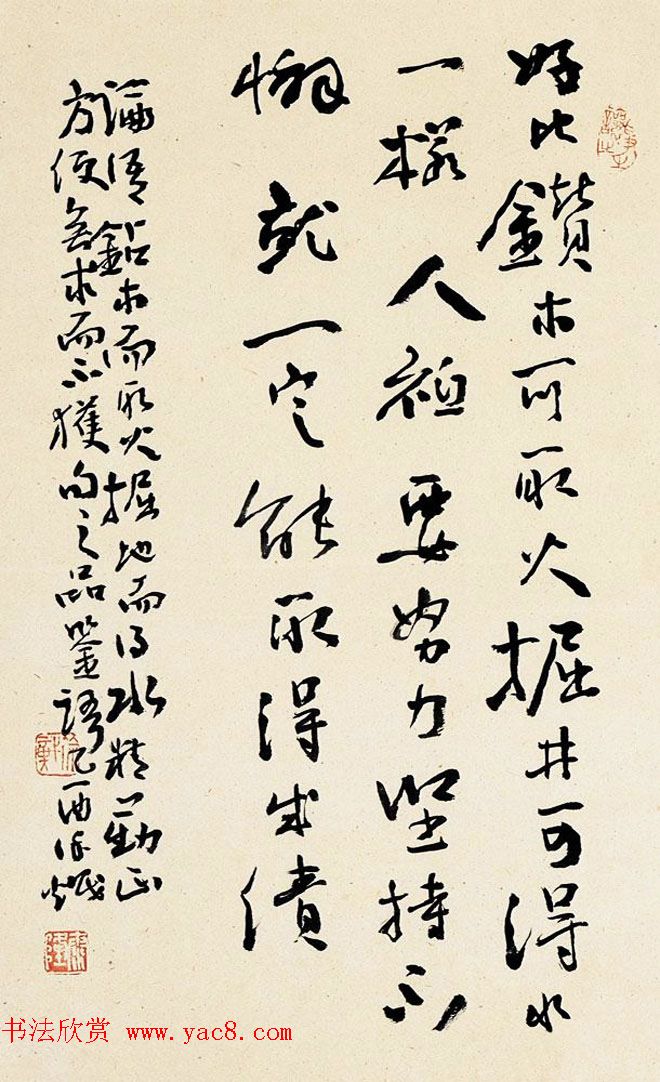 好比鑽木可取火掘井可得水
一樣人祗要努力堅持不
懈就一定能取得成績
鉆木而取火掘地而得水精勤正
方便無求而不獲句之品鉴語乙酉
书法欣赏 www.yac8.com